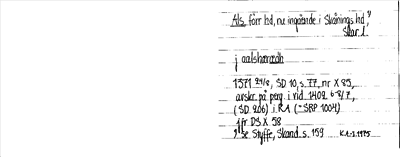 Als förr hd, nu ingående i Skånings hd,⁹
Skar. l.
j aalshæradh
1371 24/8, SD 10, s. 77, nr X 89,
avskr. på perg. i vid. 1402 6-8/7,
(SD 206) i RA (=SRP 1004)
jfr DS X 58
⁹ se Styffe, Skand. s. 159 K.1-2.1975